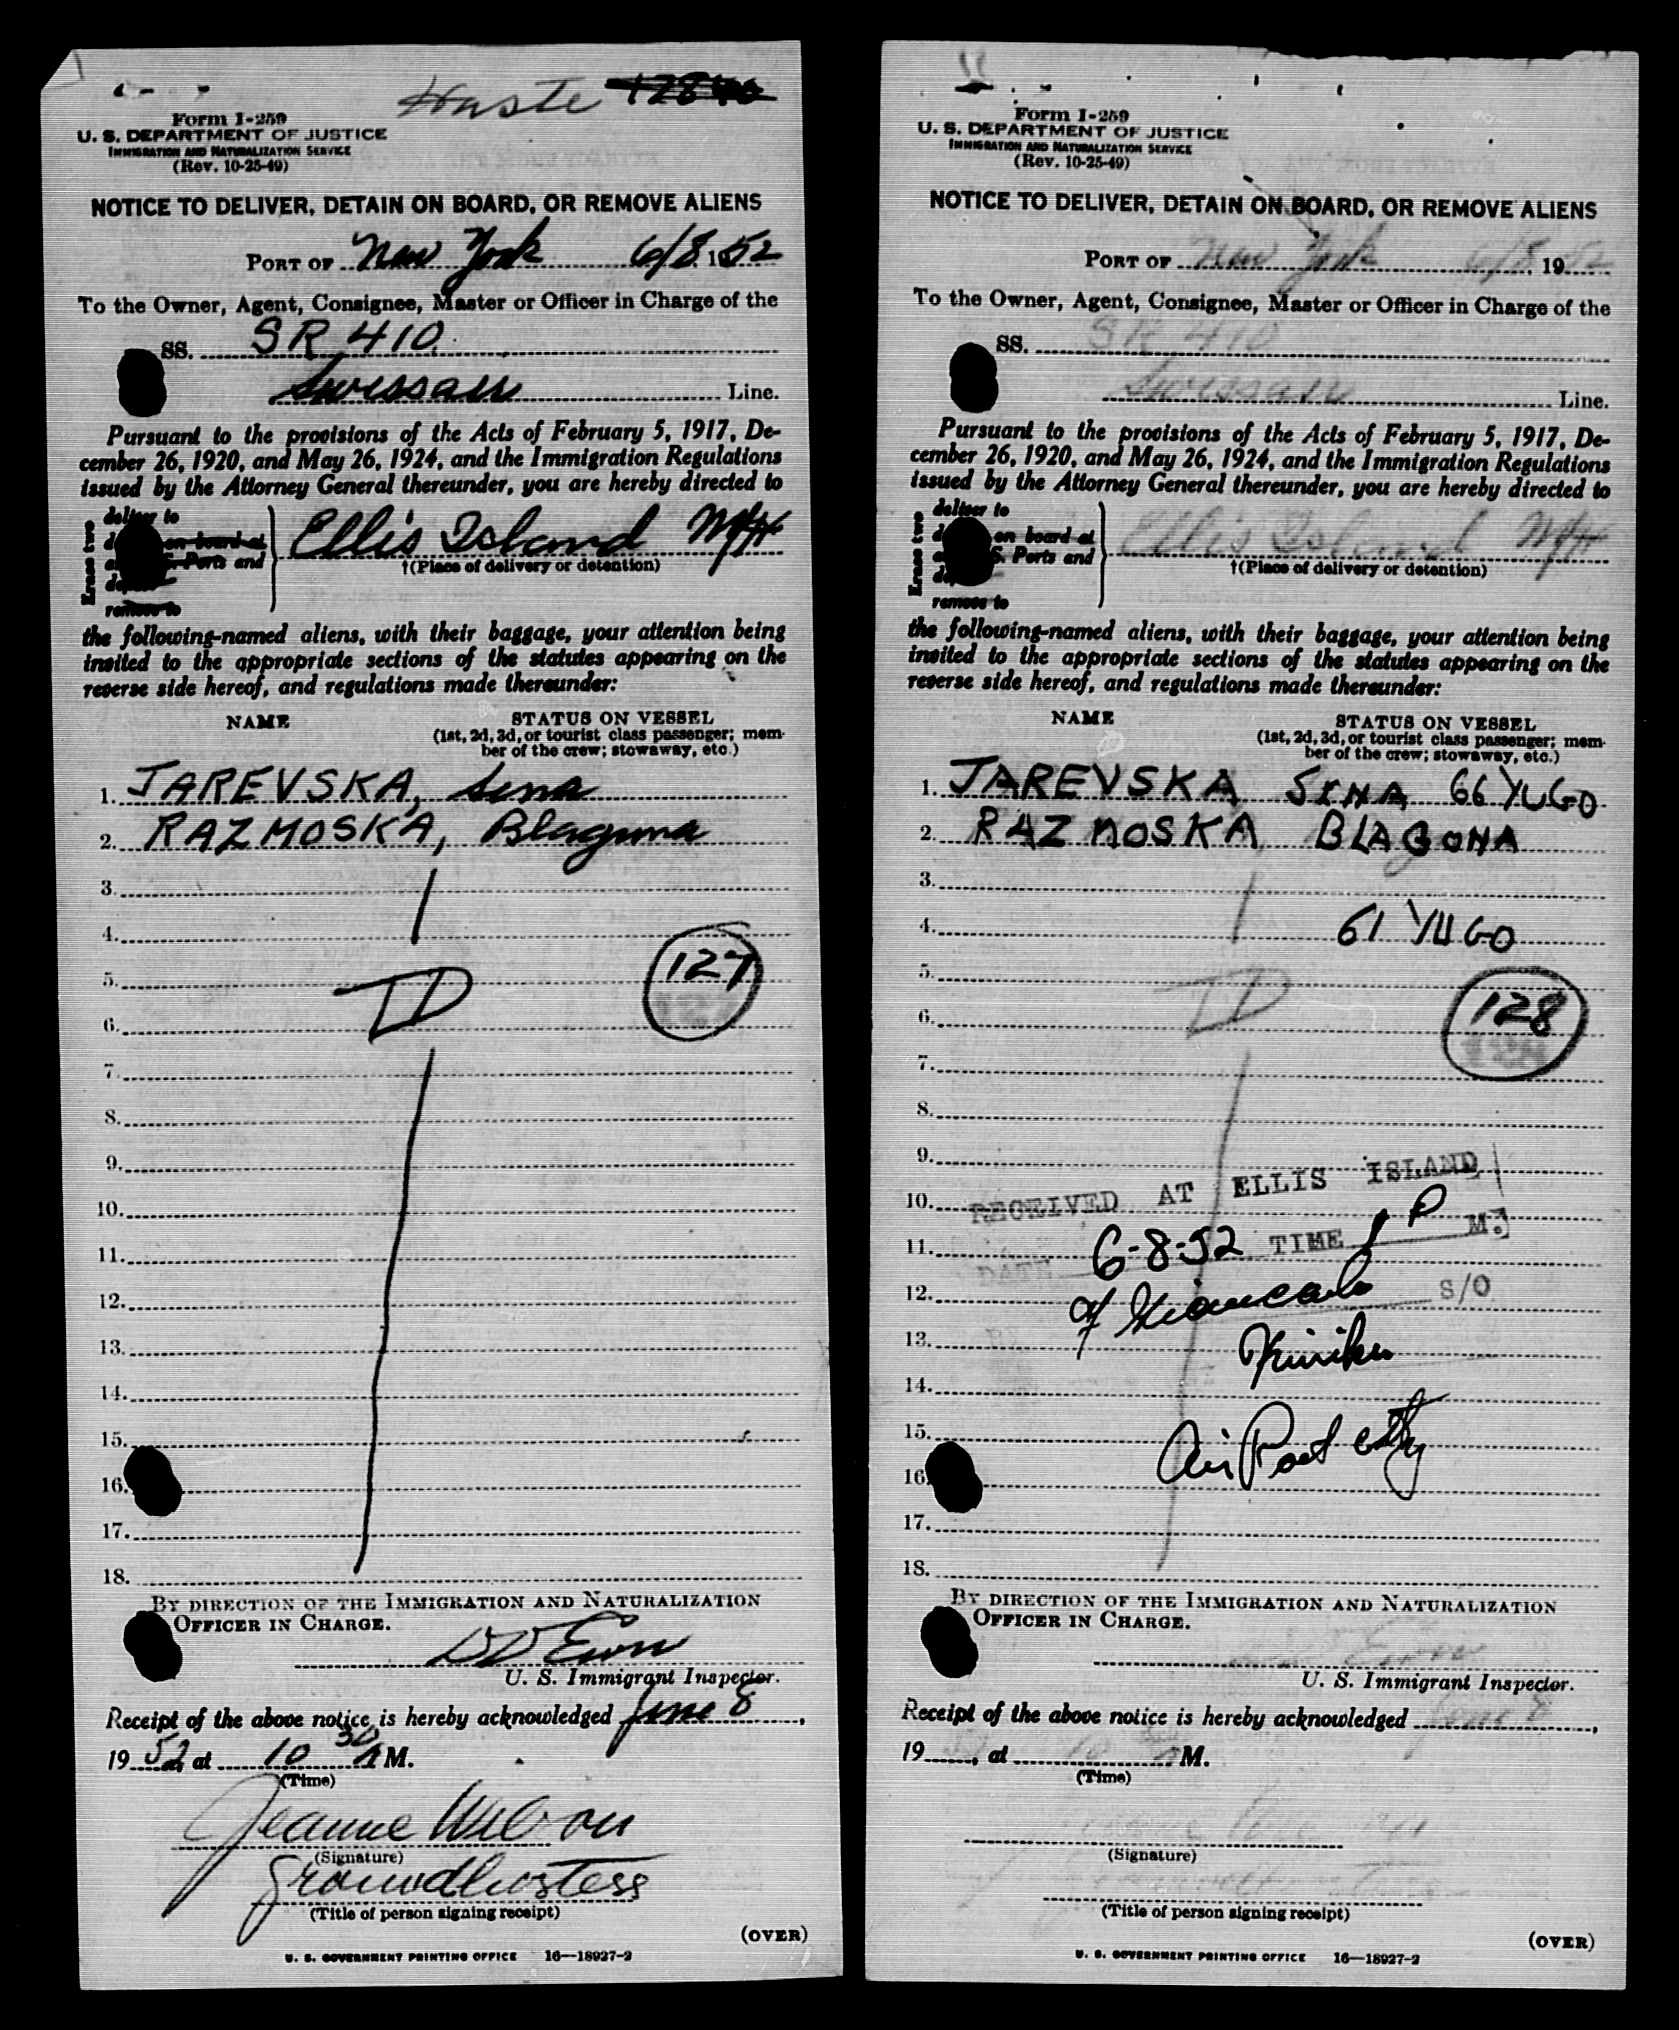 Haste 12840
Form I-259
U. S. DEPARTMENT OF JUSTICE
IMMIGRATION AND NATURALIZATION SERVICE
(Rev. 10-25-49)
NOTICE TO DELIVER, DETAIN ON BOARD, OR REMOVE ALIENS
PORT OF New York 6/8 1952
To the Owner, Agent, Consignee, Master or Officer in Charge of the
SS. SR 410
Swissair Line.
Pursuant to the provisions of the Acts of February 5, 1917, De-
cember 26, 1920, and May 26, 1924, and the Immigration Regulations
issued by the Attorney General thereunder, you are hereby directed to
Erase two
deliver to
on board at
Ports and
remove to
Ellis Island
†(Place of delivery or detention)
the following-named aliens, with their baggage, your attention being
invited to the appropriate sections of the statutes appearing on the
reverse side hereof, and regulations made thereunder:
NAME STATUS ON VESSEL
(1st, 2d, 3d, or tourist class passenger; mem-
ber of the crew; stowaway, etc.)
1. JAREVSKA, Sina
2. RAZMOSKA, Blaguna
3.
4.
5. TD 127
6.
7.
8.
9.
10.
11.
12.
13.
14.
15.
16.
17.
18.
BY DIRECTION OF THE IMMIGRATION AND NATURALIZATION
OFFICER IN CHARGE.
U. S. Immigrant Inspector.
Receipt of the above notice is hereby acknowledged June 8,
1952, at 10 30 A M.
(Time)
Jeanne Wilson
(Signature)
Groundhostess
(Title of person signing receipt)
(OVER)
U. S. GOVERNMENT PRINTING OFFICE 16—18927-2
Form I-259
U. S. DEPARTMENT OF JUSTICE
IMMIGRATION AND NATURALIZATION SERVICE
(Rev. 10-25-49)
NOTICE TO DELIVER, DETAIN ON BOARD, OR REMOVE ALIENS
PORT OF New York 6/8, 1952
To the Owner, Agent, Consignee, Master or Officer in Charge of the
SS. SR 410
Swissair Line.
Pursuant to the provisions of the Acts of February 5, 1917, De-
cember 26, 1920, and May 26, 1924, and the Immigration Regulations
issued by the Attorney General thereunder, you are hereby directed to
Erase two
deliver to
on board at
S. Ports and
remove to
Ellis Island
†(Place of delivery or detention)
the following-named aliens, with their baggage, your attention being
invited to the appropriate sections of the statutes appearing on the
reverse side hereof, and regulations made thereunder:
NAME STATUS ON VESSEL
(1st, 2d, 3d, or tourist class passenger; mem-
ber of the crew; stowaway, etc.)
1. JAREVSKA SINA 66 YUGO
2. RAZMOSKA BLAGONA
3.
4. 61 YUGO
5. TD
6. 128
7.
8.
9.
10. RECEIVED AT ELLIS ISLAND
11. DATE 6-8-52 TIME 1 P M.
12. S/O
13.
14.
15. Air Port
16.
17.
18.
BY DIRECTION OF THE IMMIGRATION AND NATURALIZATION
OFFICER IN CHARGE.
U. S. Immigrant Inspector.
Receipt of the above notice is hereby acknowledged June 8,
19 52, at 10 30 A M.
(Time)
(Signature)
(Title of person signing receipt)
(OVER)
U. S. GOVERNMENT PRINTING OFFICE 16—18927-2